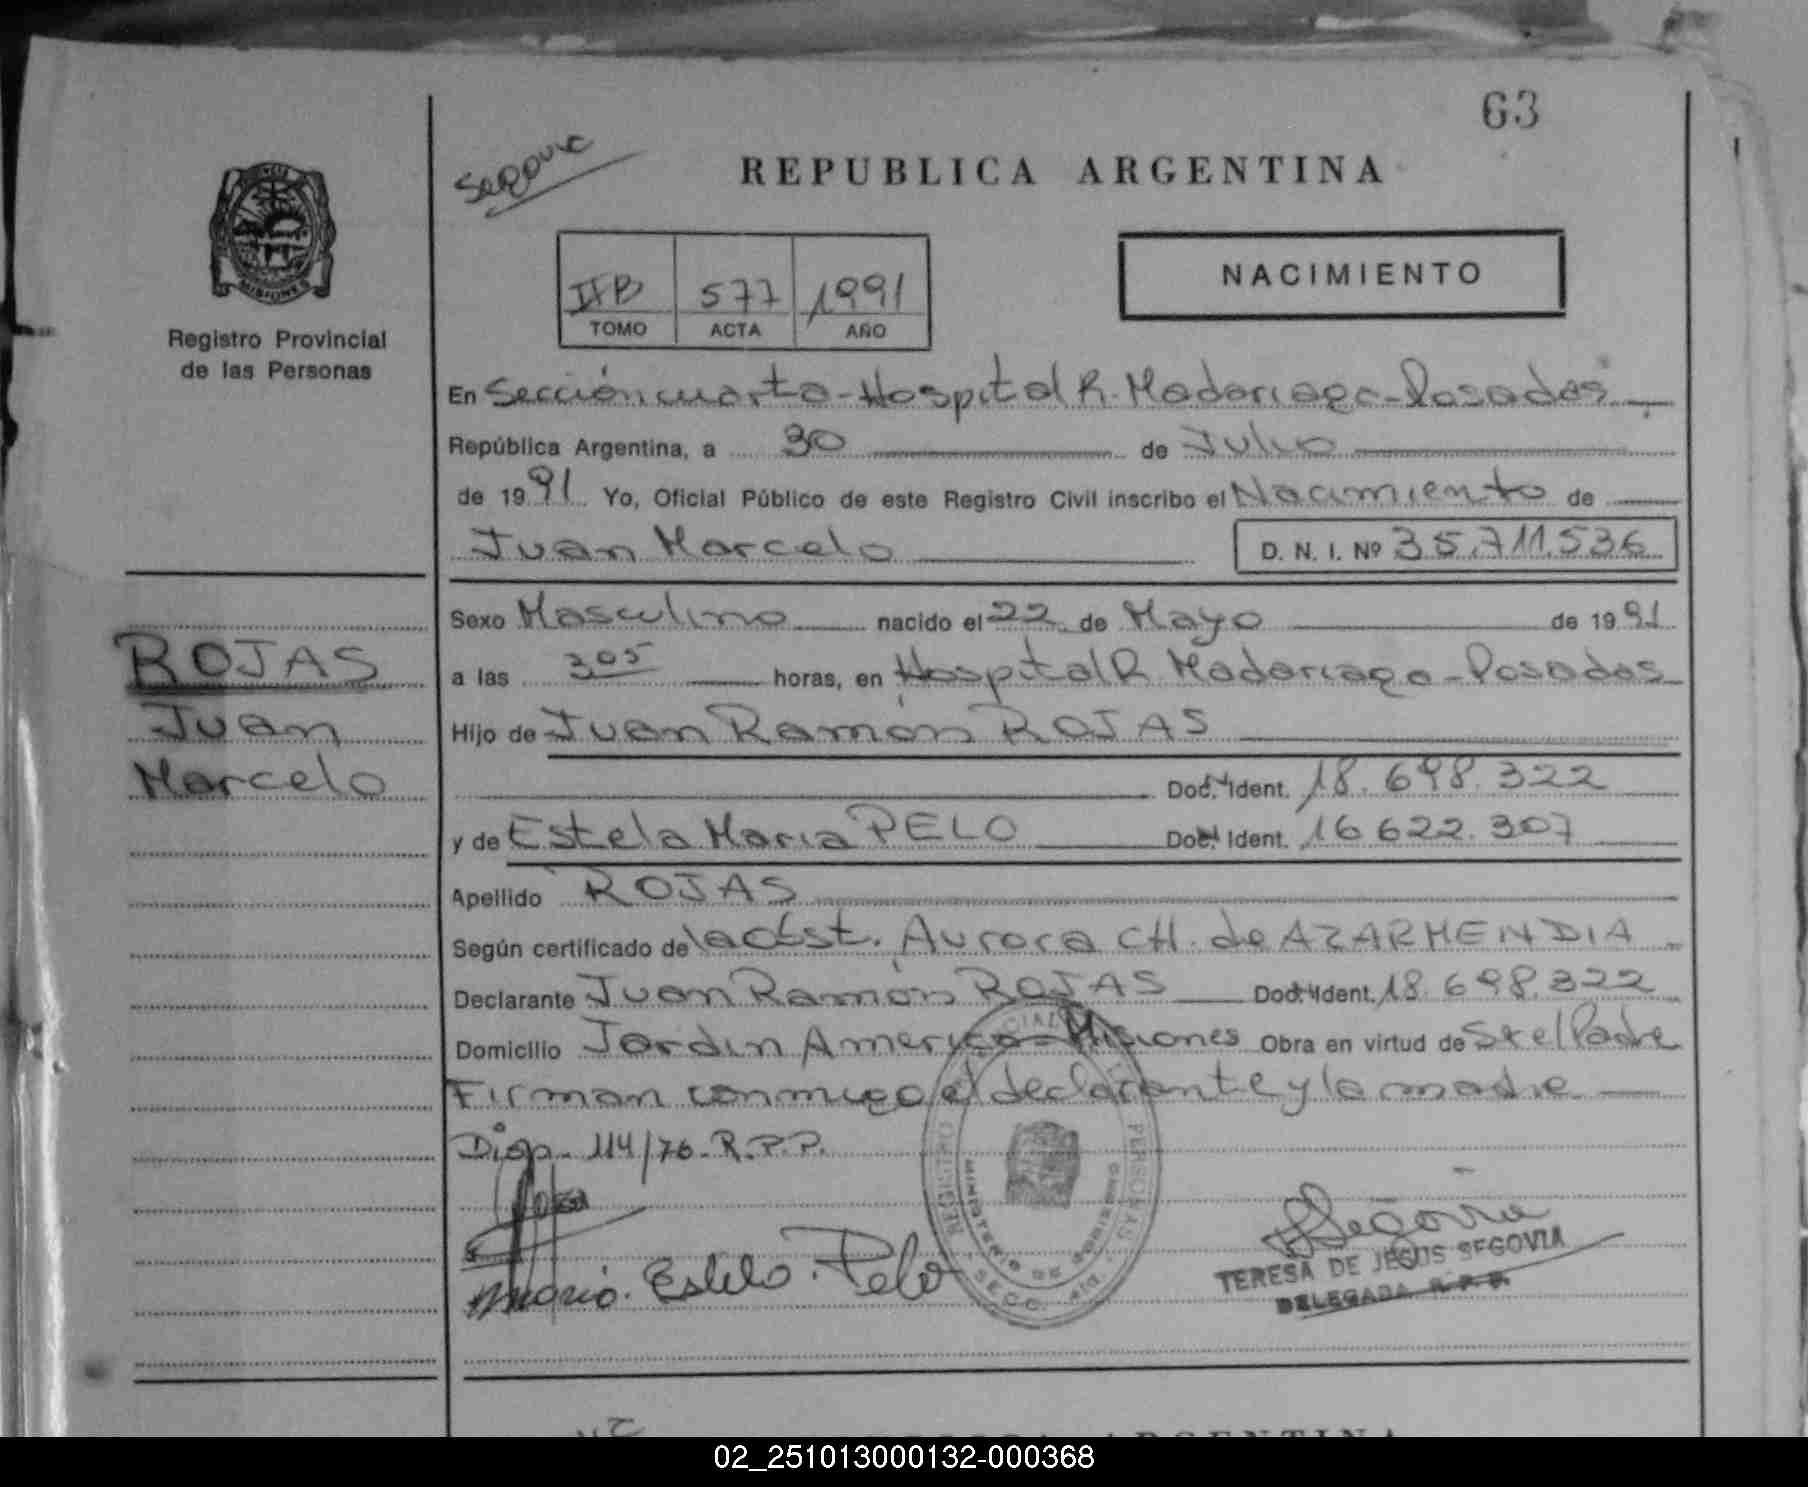 63
Segovia
REPUBLICA ARGENTINA
MISIONES
Registro Provincial
de las Personas
577 1991
TOMO ACTA AÑO
NACIMIENTO
En Sección cuarta - Hospital R. Madariaga - Posadas
República Argentina, a 30 de Julio
de 1991 Yo, Oficial Público de este Registro Civil inscribo el Nacimiento de
Juan Marcelo D. N. I. Nº 35.711.536
ROJAS
Juan
Marcelo
Sexo Masculino nacido el 22 de Mayo de 1991
a las 305 horas, en Hospital R Madariaga - Posadas
Hijo de Juan Ramón ROJAS
Doc. Ident. 18.698.322
y de Estela Maria PELO Doc. Ident. 16622.307
Apellido ROJAS
Según certificado de la Obst. Aurora CH. de AZARMENDIA
Declarante Juan Ramón ROJAS Doc. Ident. 18.698.322
Domicilio Jardin America - Misiones Obra en virtud de Ser el Padre
Firman conmigo el declarante y la madre
Disp. 114/76 - R.P.P.
Maria Estela Pelo
REGISTRO PERSONAS
MINISTERIO DE GOBIERNO
Segovia
TERESA DE JESUS SEGOVIA
DELEGADA R.P.P.
ARGENTINA
02_251013000132-000368